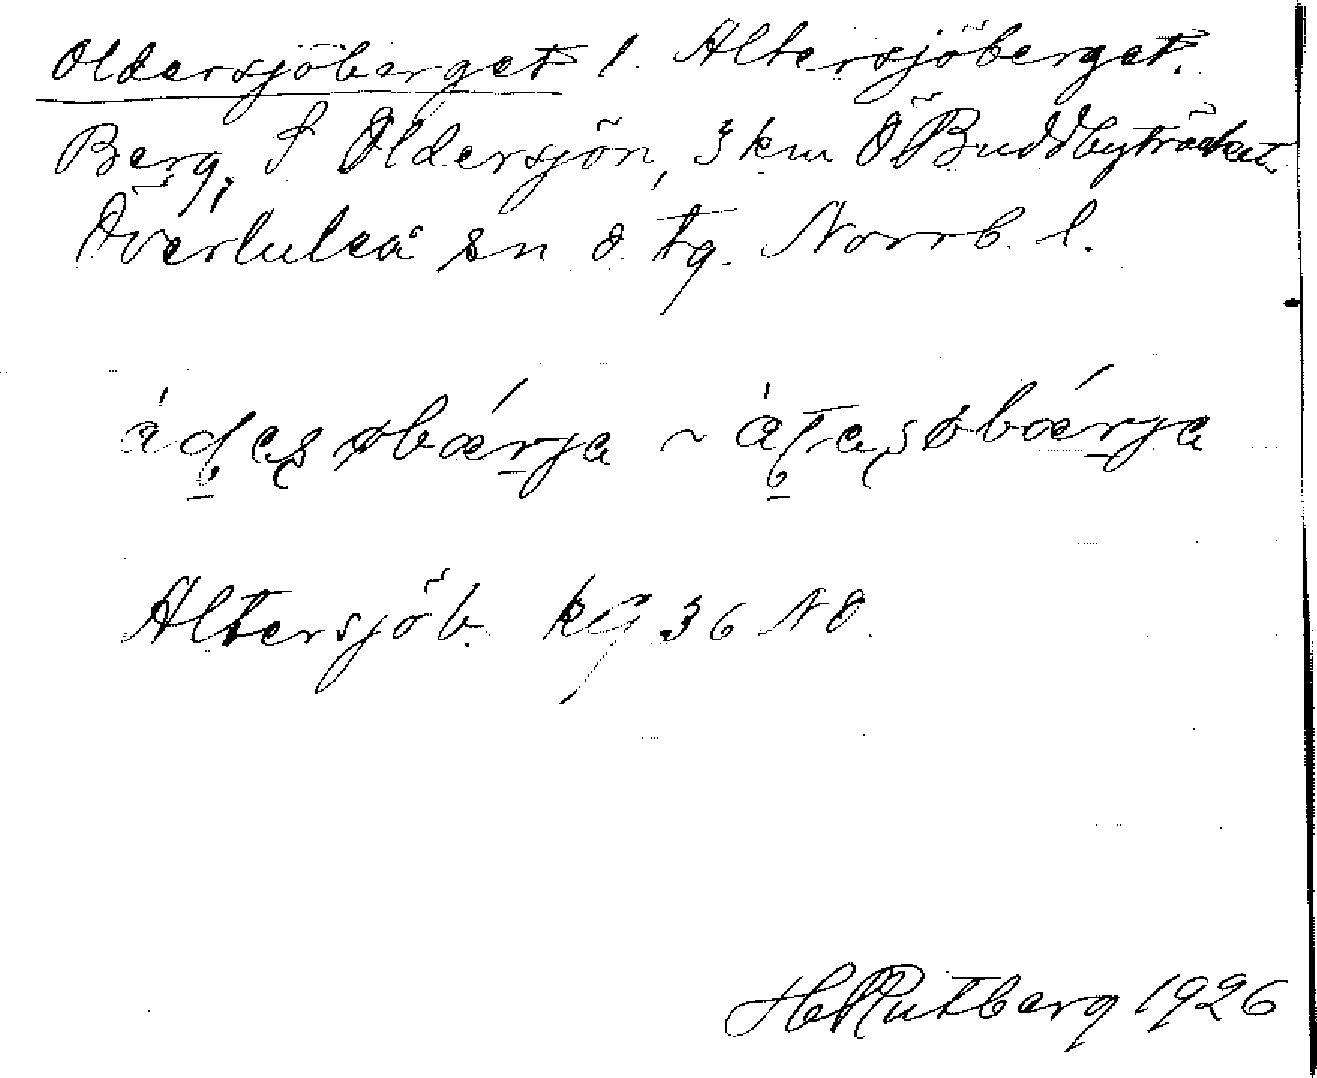 Oldersjöberget l. Altersjöberget.
Berg, S Oldersjön, 3 km Ö Buddbyträsket
Överluleå sn o. tg. Norrb. l.
Altersjöb. kg 36 NO.
H Rutberg 1926